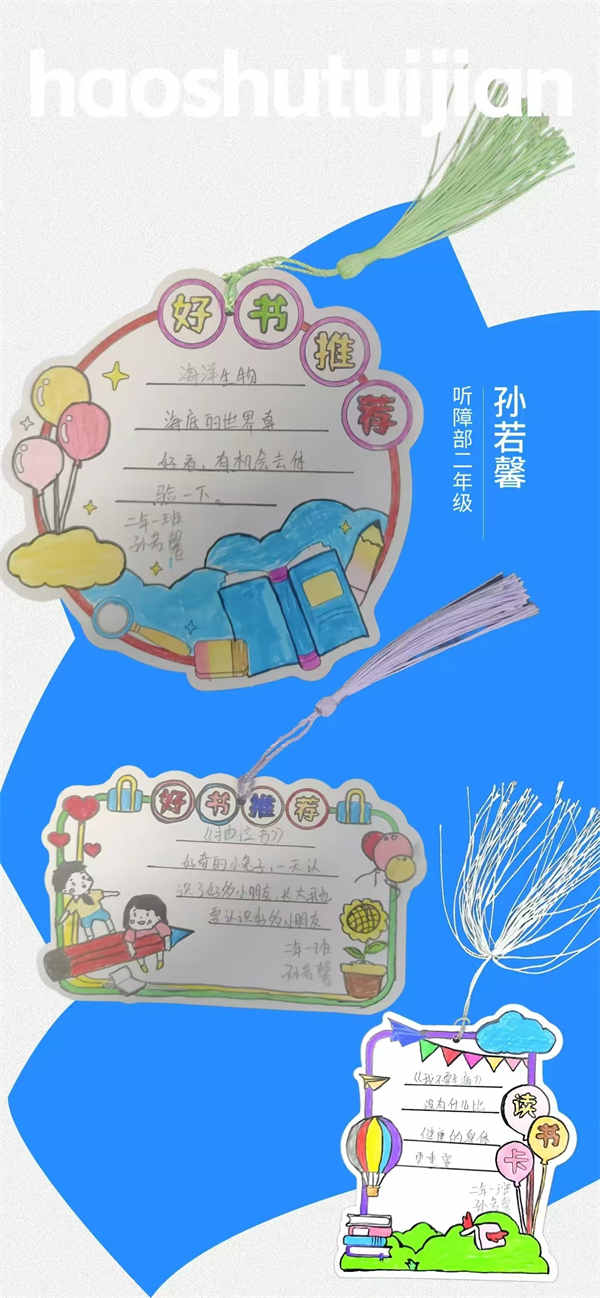 haoshutuijian
好书推荐
海洋生物
海底的世界真
好看,有机会去体
验一下。
二年一班
孙若馨
孙若馨
听障部二年级
好书推荐
好奇的小兔子,一天认
识了好多小朋友,长大我也
要认识好多小朋友
二年一班
孙若馨
《我不要生病》
没有什么比
健康的身体
更重要
读书卡
二年一班
孙若馨